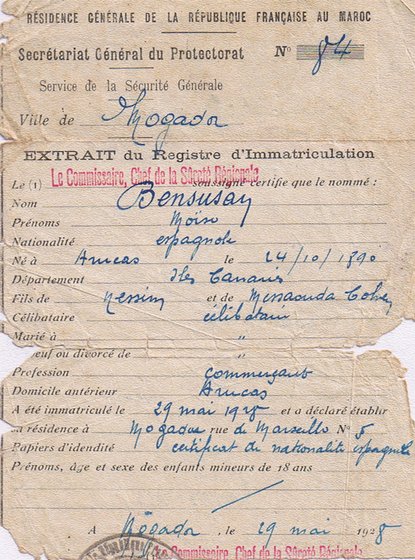 RÉSIDENCE GÉNÉRALE DE LA RÉPUBLIQUE FRANÇAISE AU MAROC
Secrétariat Général du Protectorat N° 84
Service de la Sécurité Générale
Ville de Mogador
EXTRAIT du Registre d'Immatriculation
Le Commissaire, Chef de la Sûreté Régionale
Le (1) soussigné certifie que le nommé :
Nom Bensusan
Prénoms Moïse
Nationalité espagnole
Né à Arucas le 24/10/1890
Département Iles Canaries
Fils de Nessim et de Messaouda Cohen
Célibataire célibataire
Marié à "
Veuf ou divorcé de "
Profession commerçant
Domicile antérieur Arucas
A été immatriculé le 29 mai 1928 et a déclaré établir
sa résidence à Mogador rue de Marseille N° 5
Papiers d'idendité certificat de nationalité espagnole
Prénoms, âge et sexe des enfants mineurs de 18 ans
A Mogador, le 29 mai 1928
Le Commissaire, Chef de la Sûreté Régionale